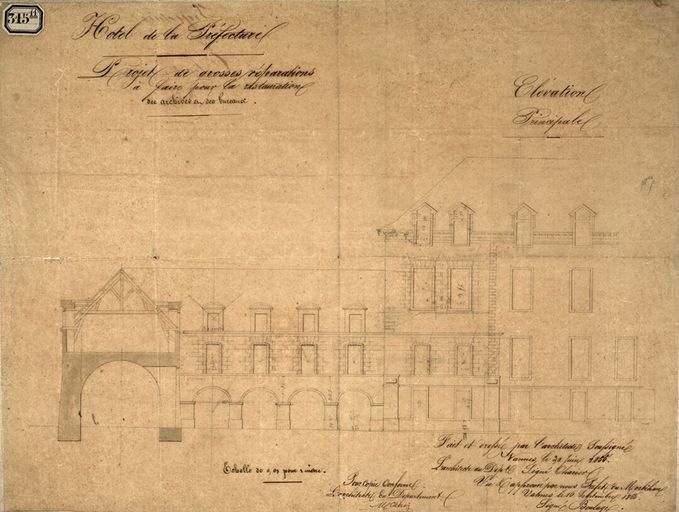 345 11
Hotel de la Préfecture
Projet de grosses réparations
à faire pour la restauration
des archives et des bureaux.
Elévation
Principale
Echelle de 0,01 pour mètre.
Fait et dressé par l'architecte soussigné
Vannes le 30 Juin
L'architecte du Dépt Signé Charier
Vu et approuvé par nous Préfet du Morbihan
Vannes le 16 Septembre
Signé
Pour copie Conforme
L'architecte du Département